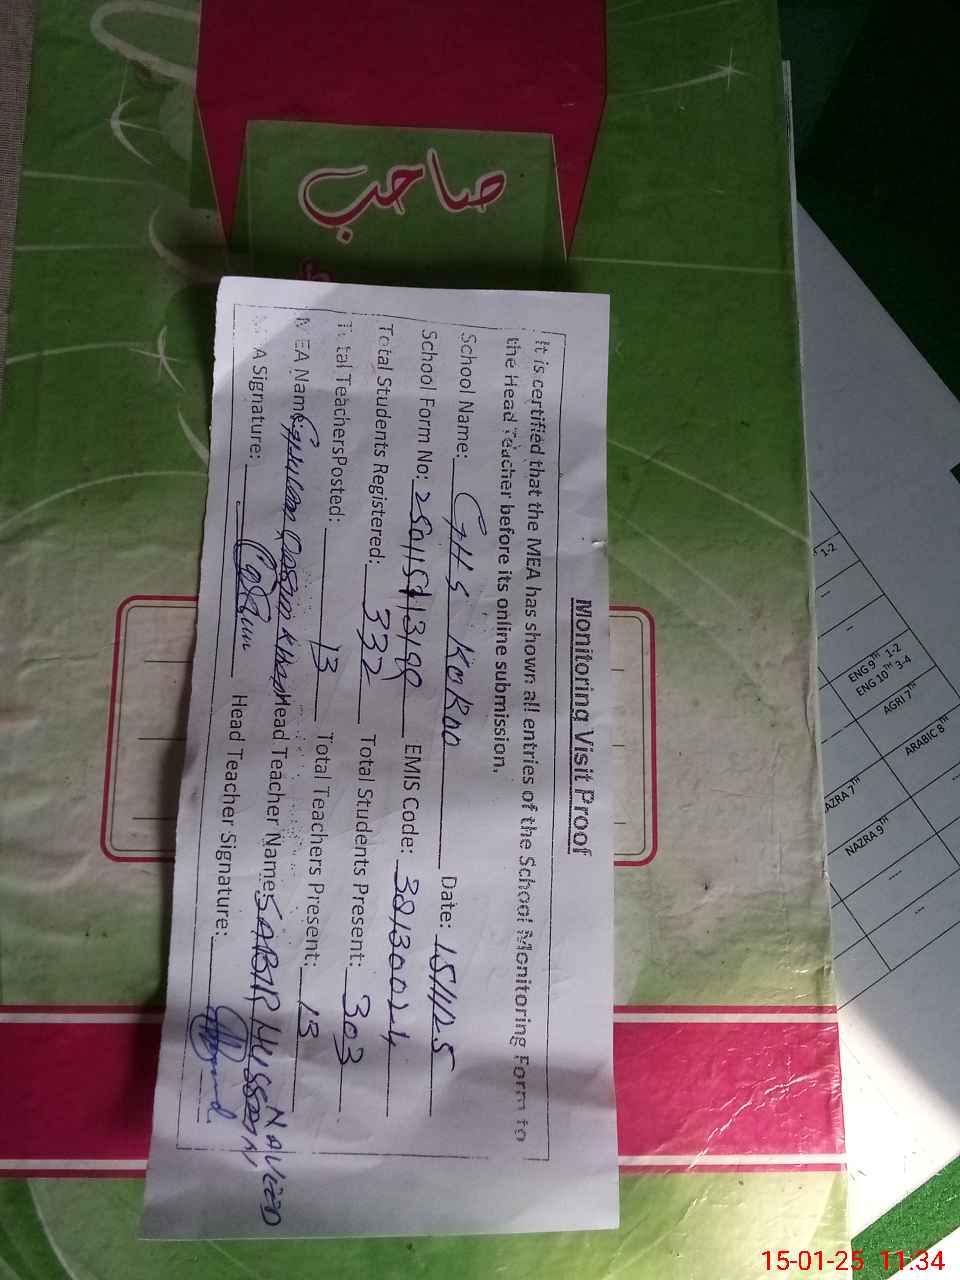 صاحب
Monitoring Visit Proof
It is certified that the MEA has shown all entries of the School Monitoring Form to
the Head Teacher before its online submission.
School Name: GHS KOROO Date: 15/1/25
School Form No: EMIS Code: 38130024
Total Students Registered: 332 Total Students Present: 303
Total TeachersPosted: 13 Total Teachers Present: 13
MEA Name: Head Teacher Name: SABAR HUSSAIN NAVEED
MEA Signature: Head Teacher Signature:
1-2
ENG 9TH 1-2
ENG 10TH 3-4
AGRI 7TH
ARABIC 8TH
AZRA 7TH
NAZRA 9TH
15-01-25 11:34